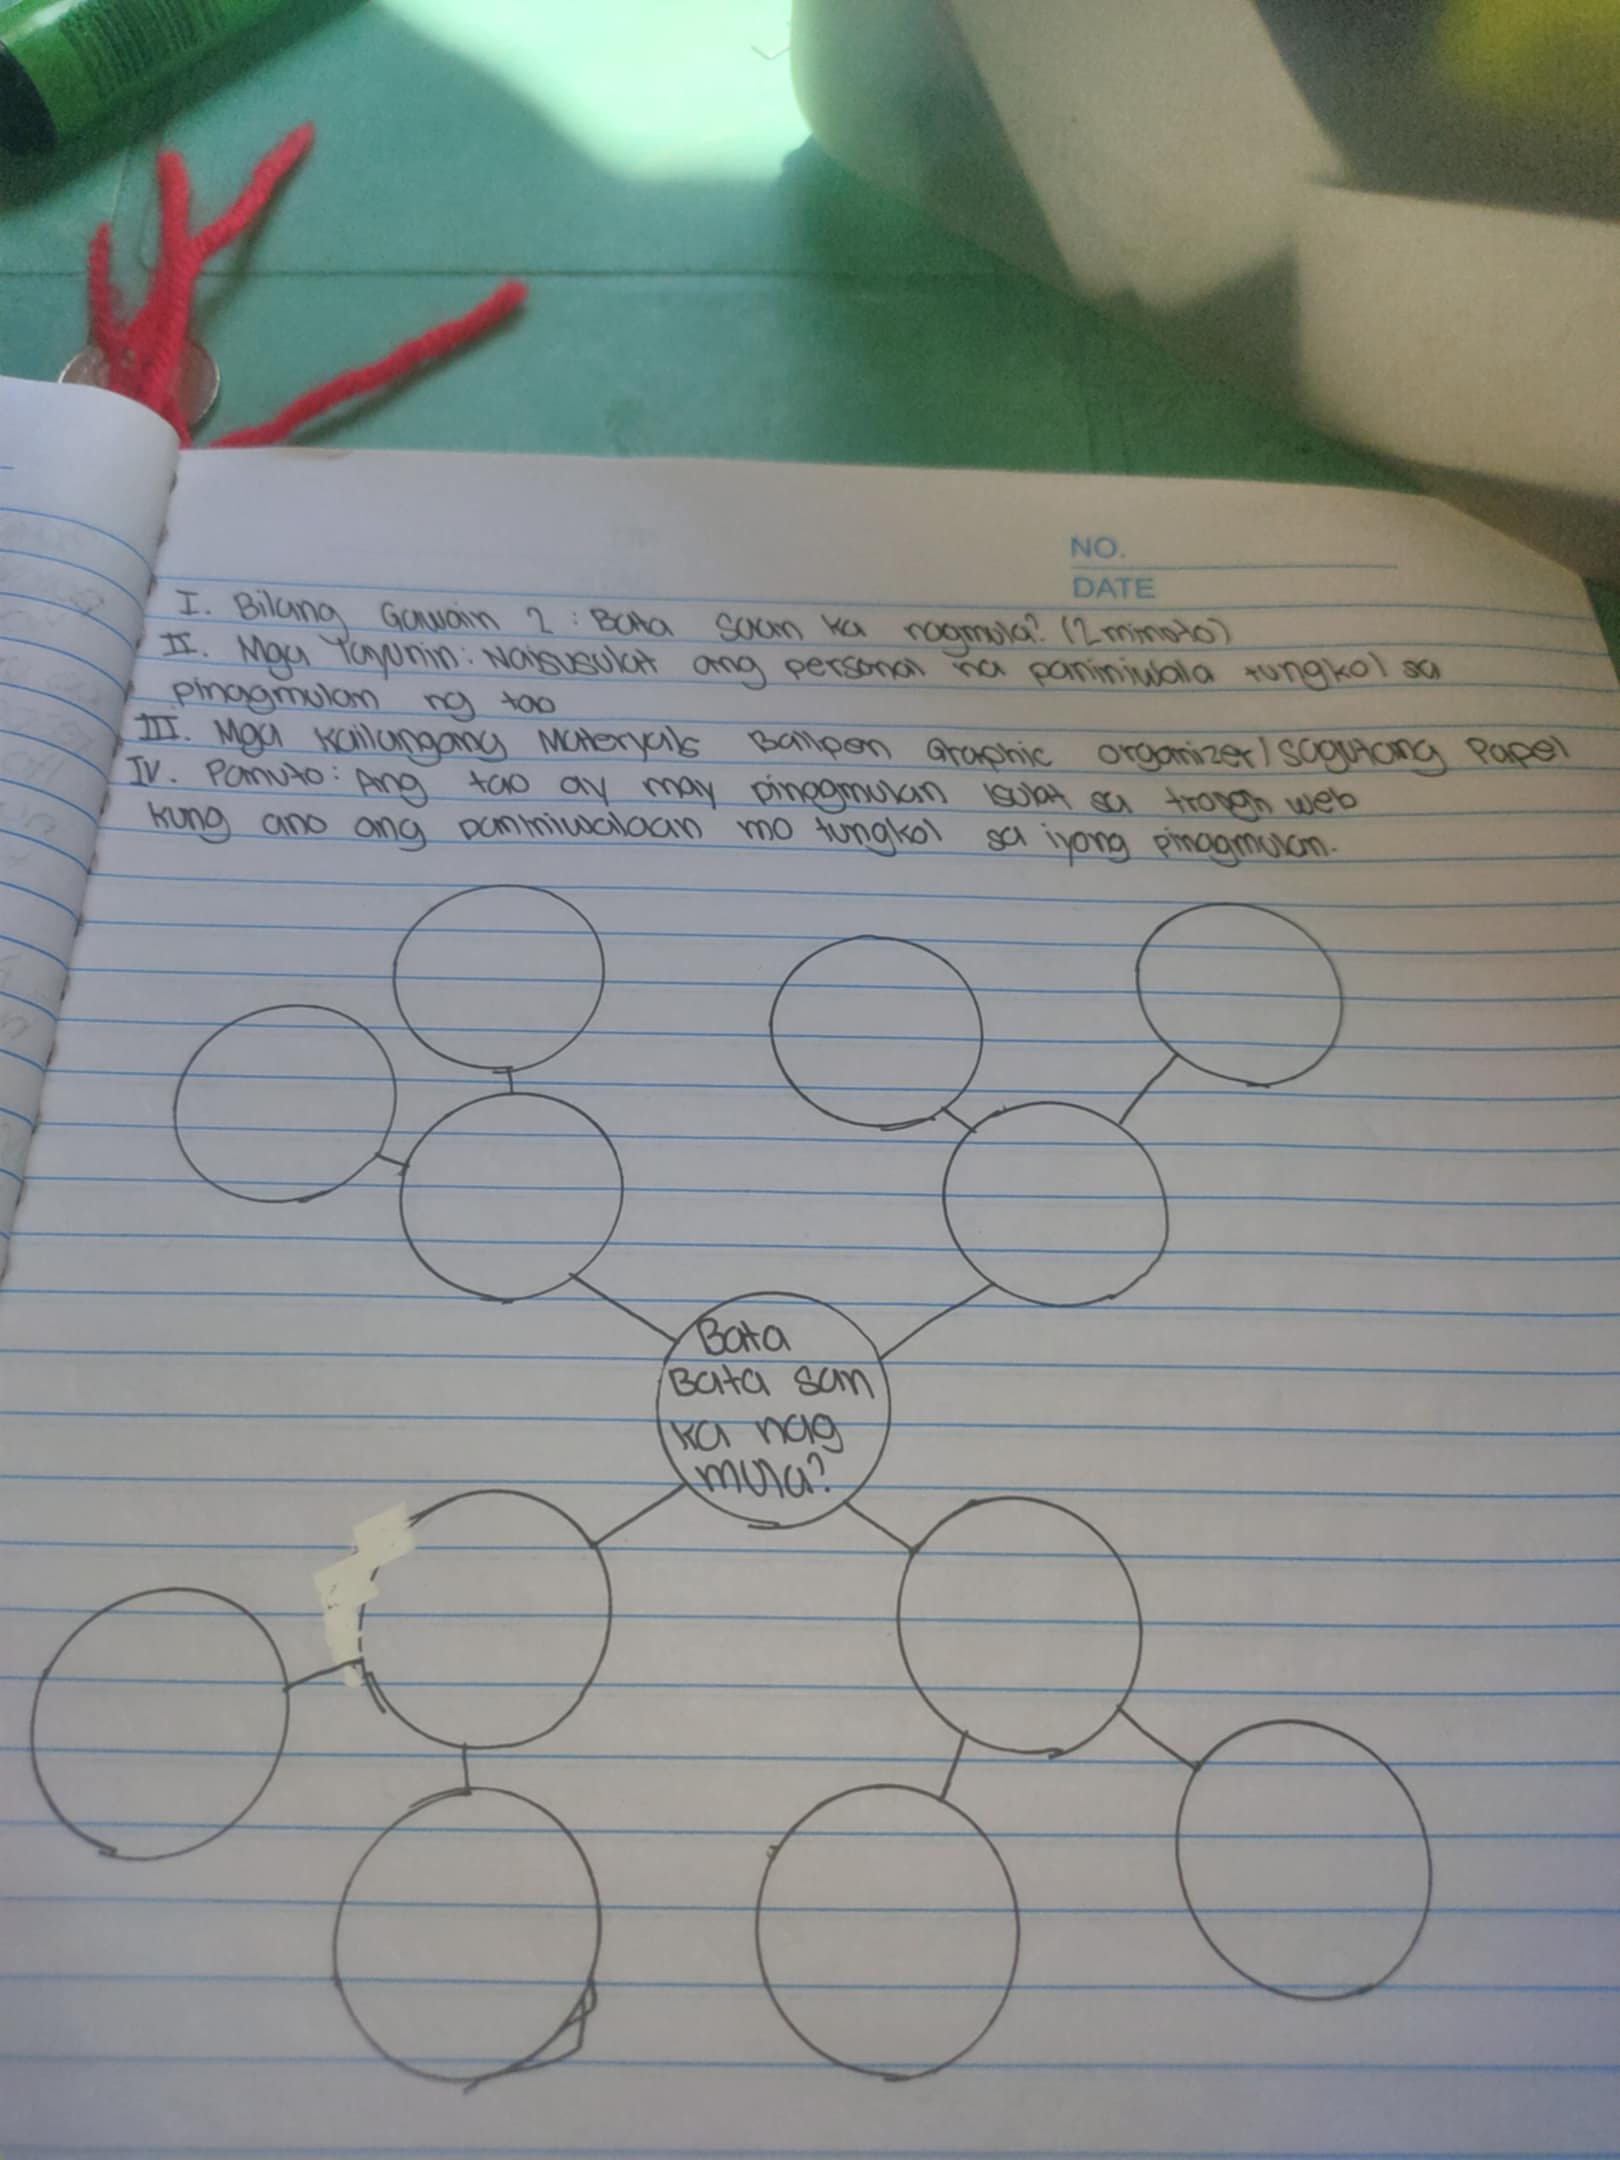 NO.
DATE
I. Bilang Gawain 2 : Bata saan ka nagmula? (2 minuto)
II. Mga Layunin: Naisusulat ang personal na paniniwala tungkol sa
pinagmulan ng tao
III. Mga Kailangang Materyals Ballpen Graphic organizer/sagutang Papel
IV. Panuto: Ang tao ay may pinagmulan isulat sa web
kung ano ang paniniwalaan mo tungkol sa iyong pinagmulan.
Bata
Bata san
ka nag
mula?